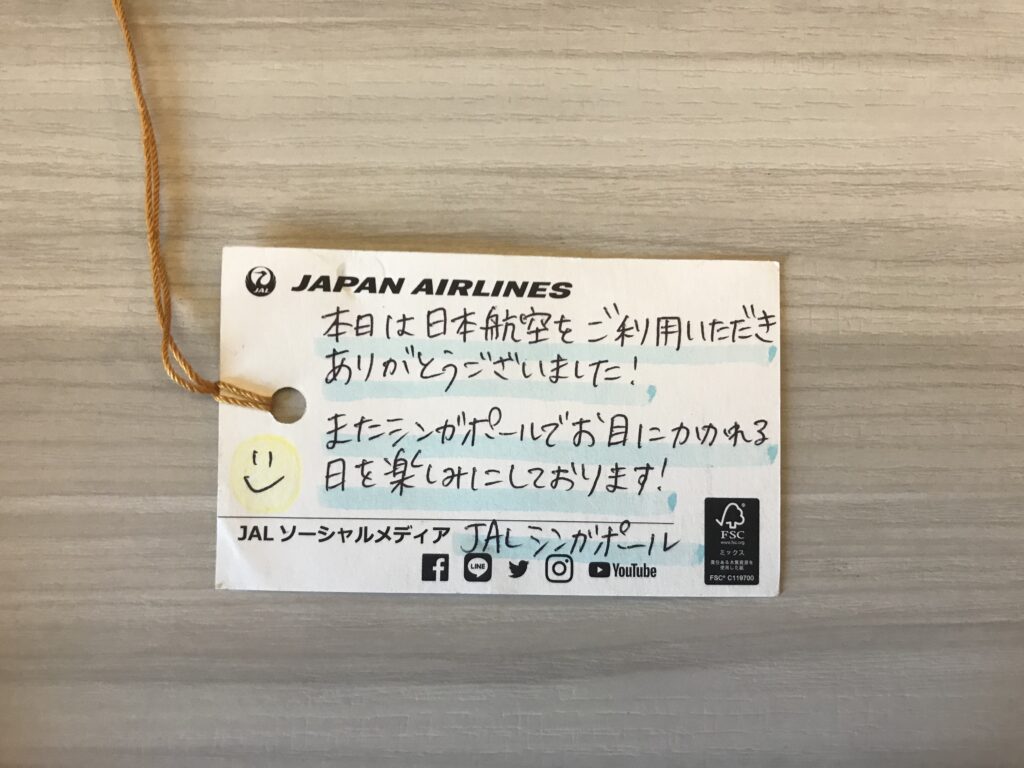 JAL JAPAN AIRLINES
本日は日本航空をご利用いただき
ありがとうございました!
またシンガポールでお目にかかれる
日を楽しみにしております!
JAL ソーシャルメディア JALシンガポール
LINE YouTube
FSC
www.fsc.org
ミックス
責任ある木質資源を
使用した紙
FSC® C119700